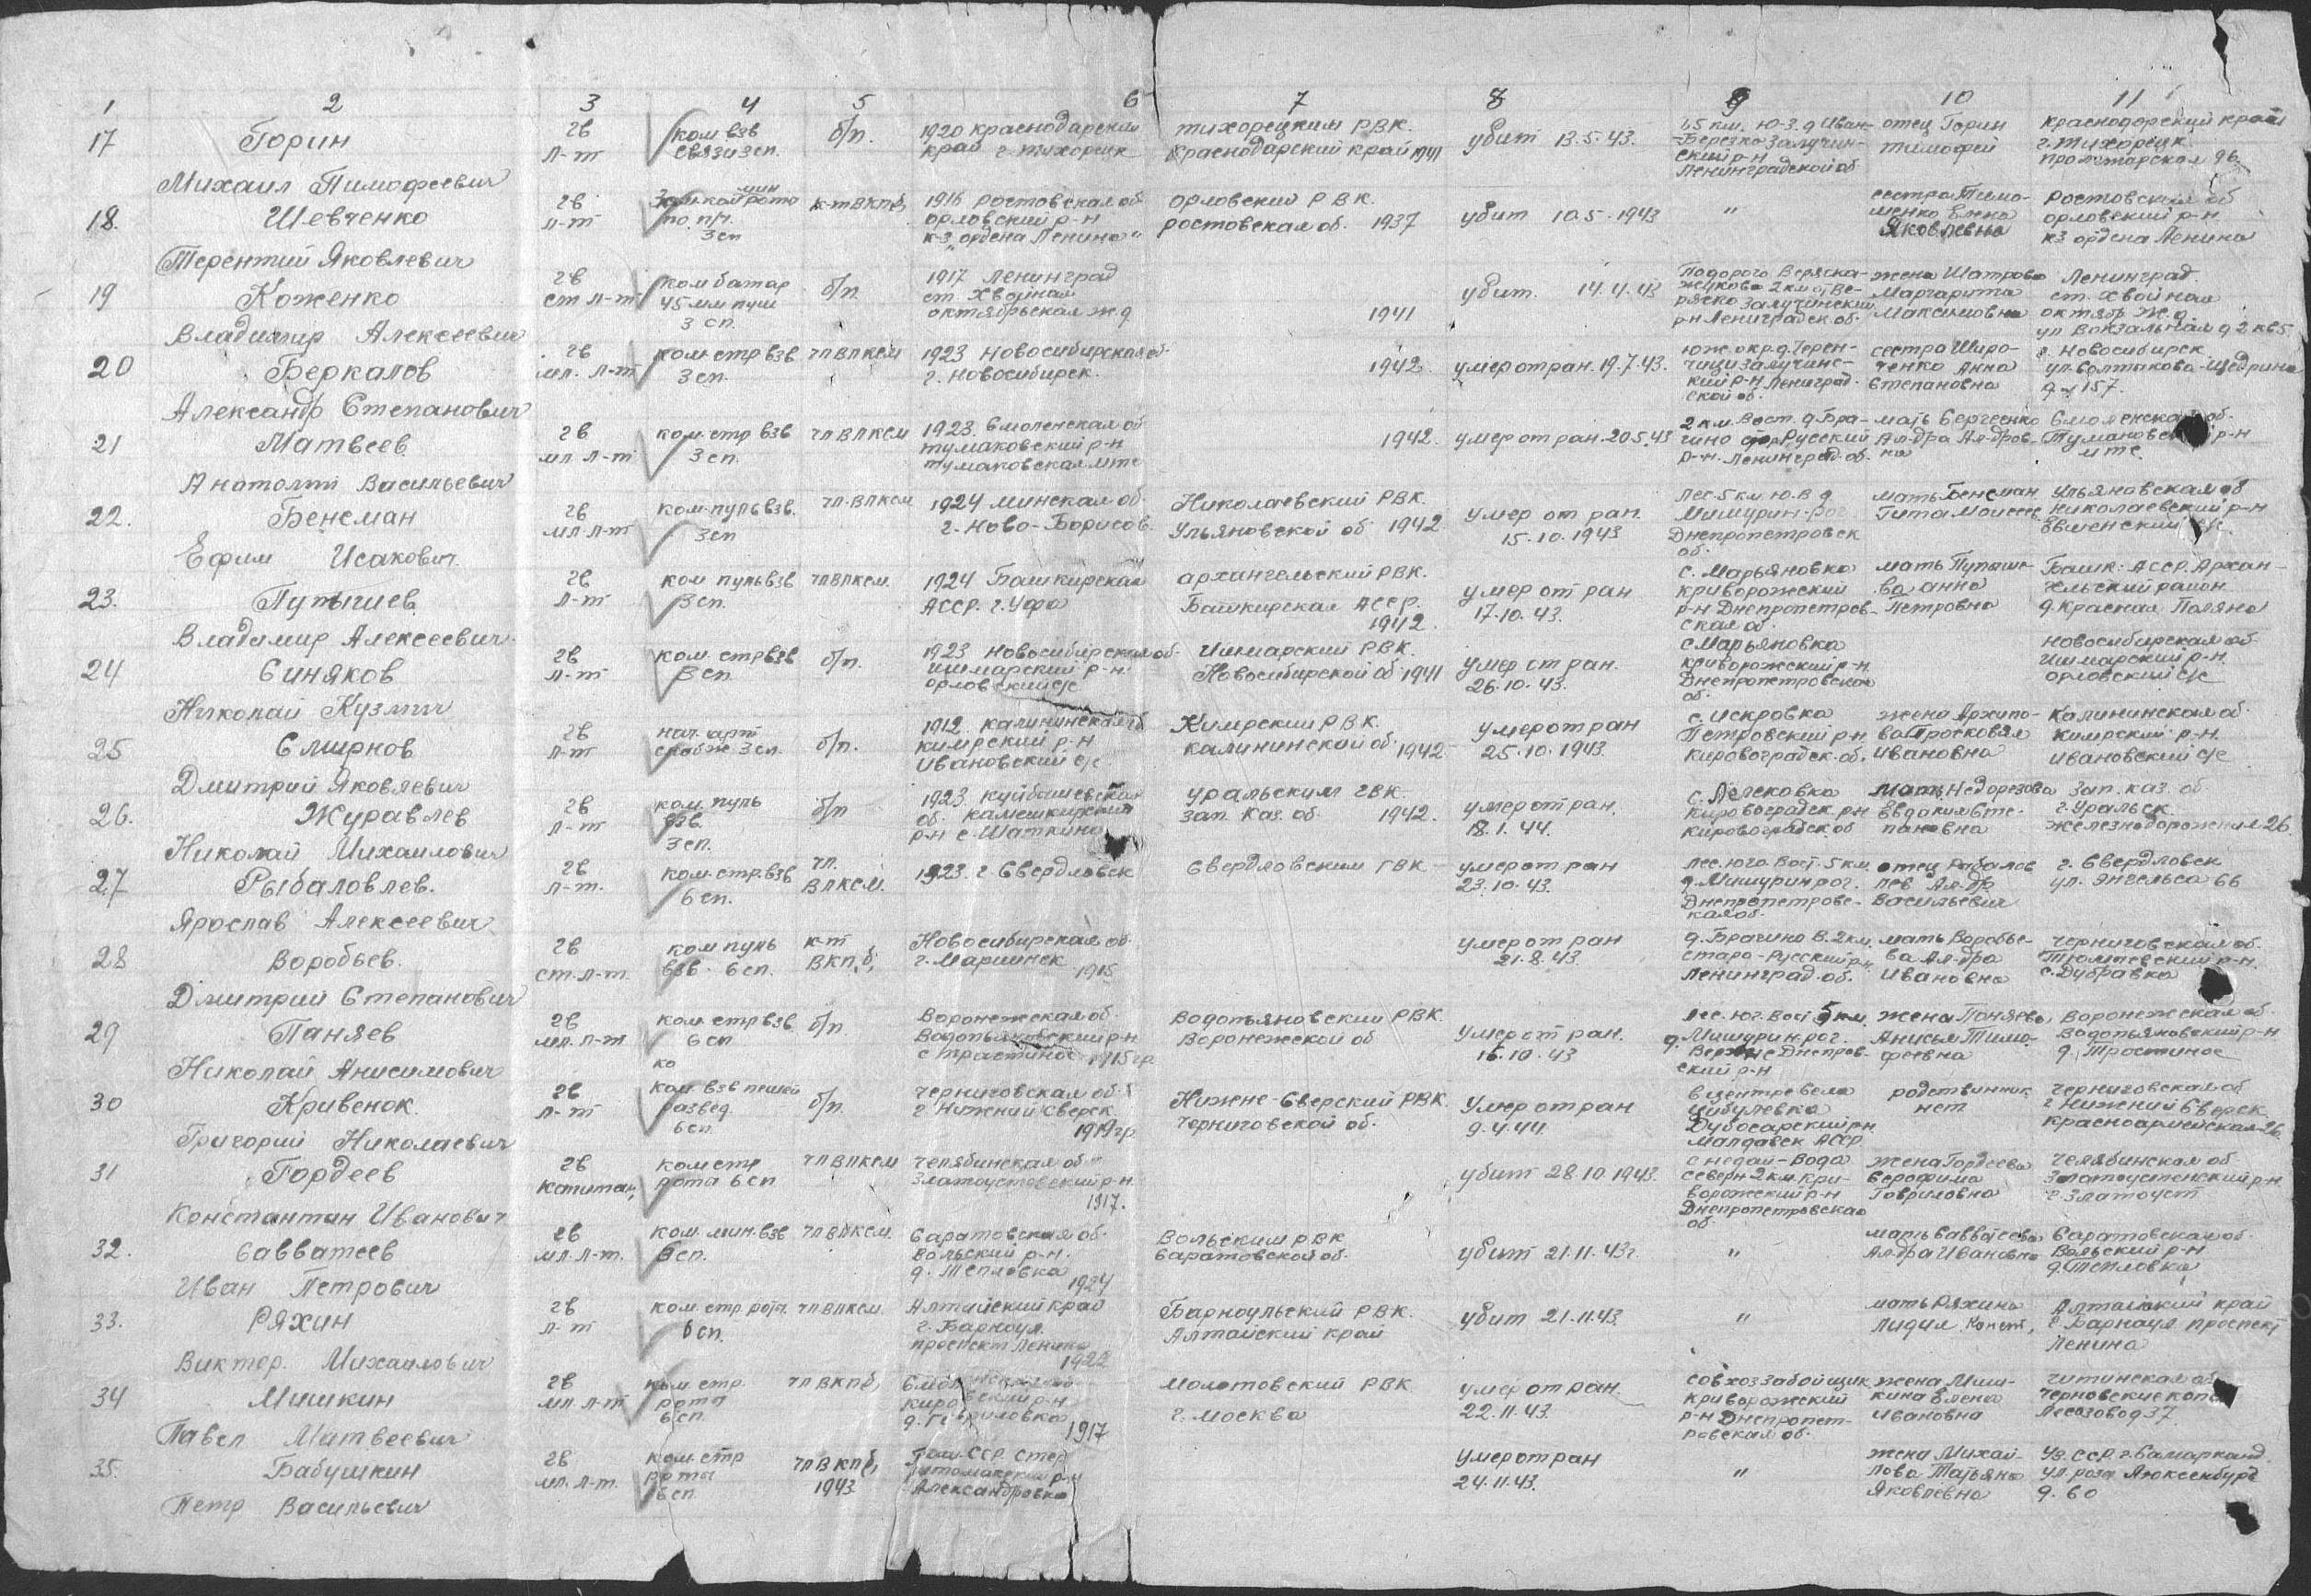 1 2 3 4 5 6 7 8 9 10 11
17 Горин Михаил Тимофеевич
гв л-т
ком. взв связи 3 сп.
б/п.
1920 Краснодарский край г. Тихорецк
Тихорецким РВК. Краснодарский край 1941
убит 13.5.43.
Ленинградской об
отец Горин Тимофей
Краснодарский край г. Тихорецк Пролетарская 96.
18. Шевченко Терентий Яковлевич
гв л-т
по п/ч 3 сп
к-т ВКПб,
1916 Ростовская об орловский р-н к-з "ордена Ленина"
орловский РВК. Ростовская об. 1937
убит 10.5.1943
"
сестра Яковлевна
Ростовская об орловский р-н. к-з ордена Ленина
19 Коженко Владимир Алексеевич
гв ст л-т
ком батар 45 мм пуш 3 сп.
б/п
1917 Ленинград ст. Хвойная октябрьская ж д
1941
убит. 14.4.43
р-н Ленинградск. об.
жена Шатрова Маргарита Максимовна
Ленинград. ст. Хвойная октябр ж.д. ул Вокзальная д 2 кв 5
20 Беркалов Александр Степанович
гв мл. л-т
ком. стр взв 3 сп.
чл ВЛКСМ
1923 Новосибирская об. г. Новосибирск.
1942.
умер от ран. 19.7.43.
юж. окр. д. Черенчицы Залучинский р-н Ленинградской об.
сестра Широченко Анна Степановна
г. Новосибирск ул. Салтыкова-Щедрина д - 157.
21 Матвеев Анатолий Васильевич
гв мл л-т
ком. стр взв 3 сп.
чл ВЛКСМ
1923. Смоленская об
1942.
умер от ран. 20.5.43
2 км. Вост. д. Брагино стар Русский р-н. Ленинград. об.
мать Сергеенко Ал-дра Ал-дровна
Смоленская об. Тумановский р-н мтс.
22. Бенсман Ефим Исакович.
гв мл л-т
ком. пуль взв. 3 сп
чл. ВЛКСМ
1924 Минская об. г. Ново-Борисов.
Николаевский РВК. Ульяновской об 1942
умер от ран. 15.10.1943
лес. 5 км. ю. в д. Мишурин-рог Днепропетровск об.
мать Бенсман Гита
Ульяновская об Николаевский р-н
23. Путышев Владимир Алексеевич.
гв л-т
ком пуль взв 3 сп.
чл ВЛКСМ.
1924 Башкирская АССР. г. Уфа
архангельский РВК. Башкирская АССР. 1942.
умер от ран 17.10.43.
с. Марьяновка криворожский р-н Днепропетровская об.
мать Путышева Анна Петровна
Башк. АССР. Архангельский район д. Красная Поляна
24 Синяков Николай Кузмич
гв л-т
ком. стр взв 3 сп
б/п.
1923 Новосибирская об. ишмарский р-н. орловский с/с
Ишмарский РВК. Новосибирской об. 1941
умер от ран. 26.10.43.
с Марьяновка криворожский р-н. Днепропетровская об.
Новосибирская об ишмарский р-н. орловский с/с
25 Смирнов Дмитрий Яковлевич
гв л-т
нач. арт снабж 3 сп.
б/п.
1912. Калининская об кимрский р-н Ивановский с/с.
Кимрский РВК. Калининской об. 1942
умер от ран 25.10.1943.
с. Искровка Петровский р-н Кировоградск. об.
жена Архипова Просковья Ивановна
Калининская об. Кимрский р-н. ивановский с/с
26. Журавлев Николай Михаилович
гв л-т
ком. пуль взв. 3 сп.
б/п
1923. Куйбышевская об. Камешкирский р-н с. Шаткино
Уральским ГВК. Зап. Каз. об. 1942.
умер от ран. 18.1.44.
с. Лелековка Кировоградск р-н Кировоградск об
мать Недорезова Евдокия Степановна
Зап. каз. об. г. Уральск. железнодорожная 26.
27 Рыбаловлев. Ярослав Алексеевич
гв л-т.
ком. стр. взв 6 сп.
чл. ВЛКСМ.
1923. г Свердловск
Свердловским ГВК
умер от ран 23.10.43.
лес. юго. Вост. 5 км. д. Мишурин рог. Днепропетровская об.
отец Ал-др Васильевич
г. Свердловск ул. Энгельса 66
28 Воробьев. Дмитрий Степанович
гв ст. л-т.
ком пуль взв. 6 сп.
к-т ВКП,б,
Новосибирская об. г. Мариинск 1915
умер от ран 21.8.43.
д. Брагино В. 2 км. старо-Русский р-н. Ленинград. об.
мать Воробьева Ал-дра Ивановна
Черниговская об. с. Дубравка
29 Паняев Николай Анисимович
гв мл. л-т
ком. стр взв 6 сп
б/п.
Воронежская об. 1915 гр
Водопьяновский РВК Воронежской об
умер от ран. 16.10.43
лес. юг. Вост 5 км. д. Мишурин. рог.
жена Паняева, Анисья Тимофеевна
Воронежская об. Водопьяновский р-н
30 Кривенок. Григорий Николаевич
гв л-т
ком. взв пешей развед 6 сп.
б/п
Черниговская об. г Нижний Сверск 1919 гр
Нижне-Сверский РВК. Черниговской об.
умер от ран 9.4.44.
в центре села Цибулевка Дубосарский р-н Малдавск АССР
родственник нет
Черниговская об г Нижний Сверск Красноармейская 26.
31 Гордеев Константин Иванович
гв капитан,
ком стр рота 6 сп
чл ВЛКСМ
Челябинская об. Златоустовский р-н. 1917.
убит 28.10.1943.
с недай-Вода северн 2 км. Криворожский р-н Днепропетровская об
жена Гордеева Серафима Гавриловна
Челябинская об г. Златоуст
32. Савватеев Иван Петрович
гв мл. л-т.
ком. мин. взв 6 сп.
чл ВЛКСМ.
Саратовская об. Вольский р-н. д. Тепловка 1924
Вольским РВК Саратовской об.
убит 21.11.43 г.
"
мать Савватеева Ал-дра Ивановна
Саратовская об. Вольский р-н д. Тепловка
33. Ряхин Виктор. Михаилович
гв л-т
ком. стр рота. 6 сп.
чл ВЛКСМ.
Алтайский край г. Барнаул. проспект Ленина 1922
Барнаульский РВК. Алтайский край
убит 21.11.43
"
мать Ряхина Лидия Конст,
Алтайский край г. Барнаул проспект Ленина
34 Мишкин Павел Матвеевич
гв мл л-т
ком. стр. рота 6 сп
чл ВКПб,
1917
Молотовский РВК г. Москва
умер от ран 22.11.43.
совхоз Забойщик криворожский р-н Днепропетровская об.
жена Мишкина Елена Ивановна
Читинская об
35. Бабушкин Петр Васильевич
гв мл. л-т.
ком. стр рота 6 сп
чл ВКПб, 1943
Александровка
умер от ран 24.11.43.
"
жена Михайлова Татьяна Яковлевна
Уз. ССР. г. Самарканд. ул. роза Люксенбург д. 60